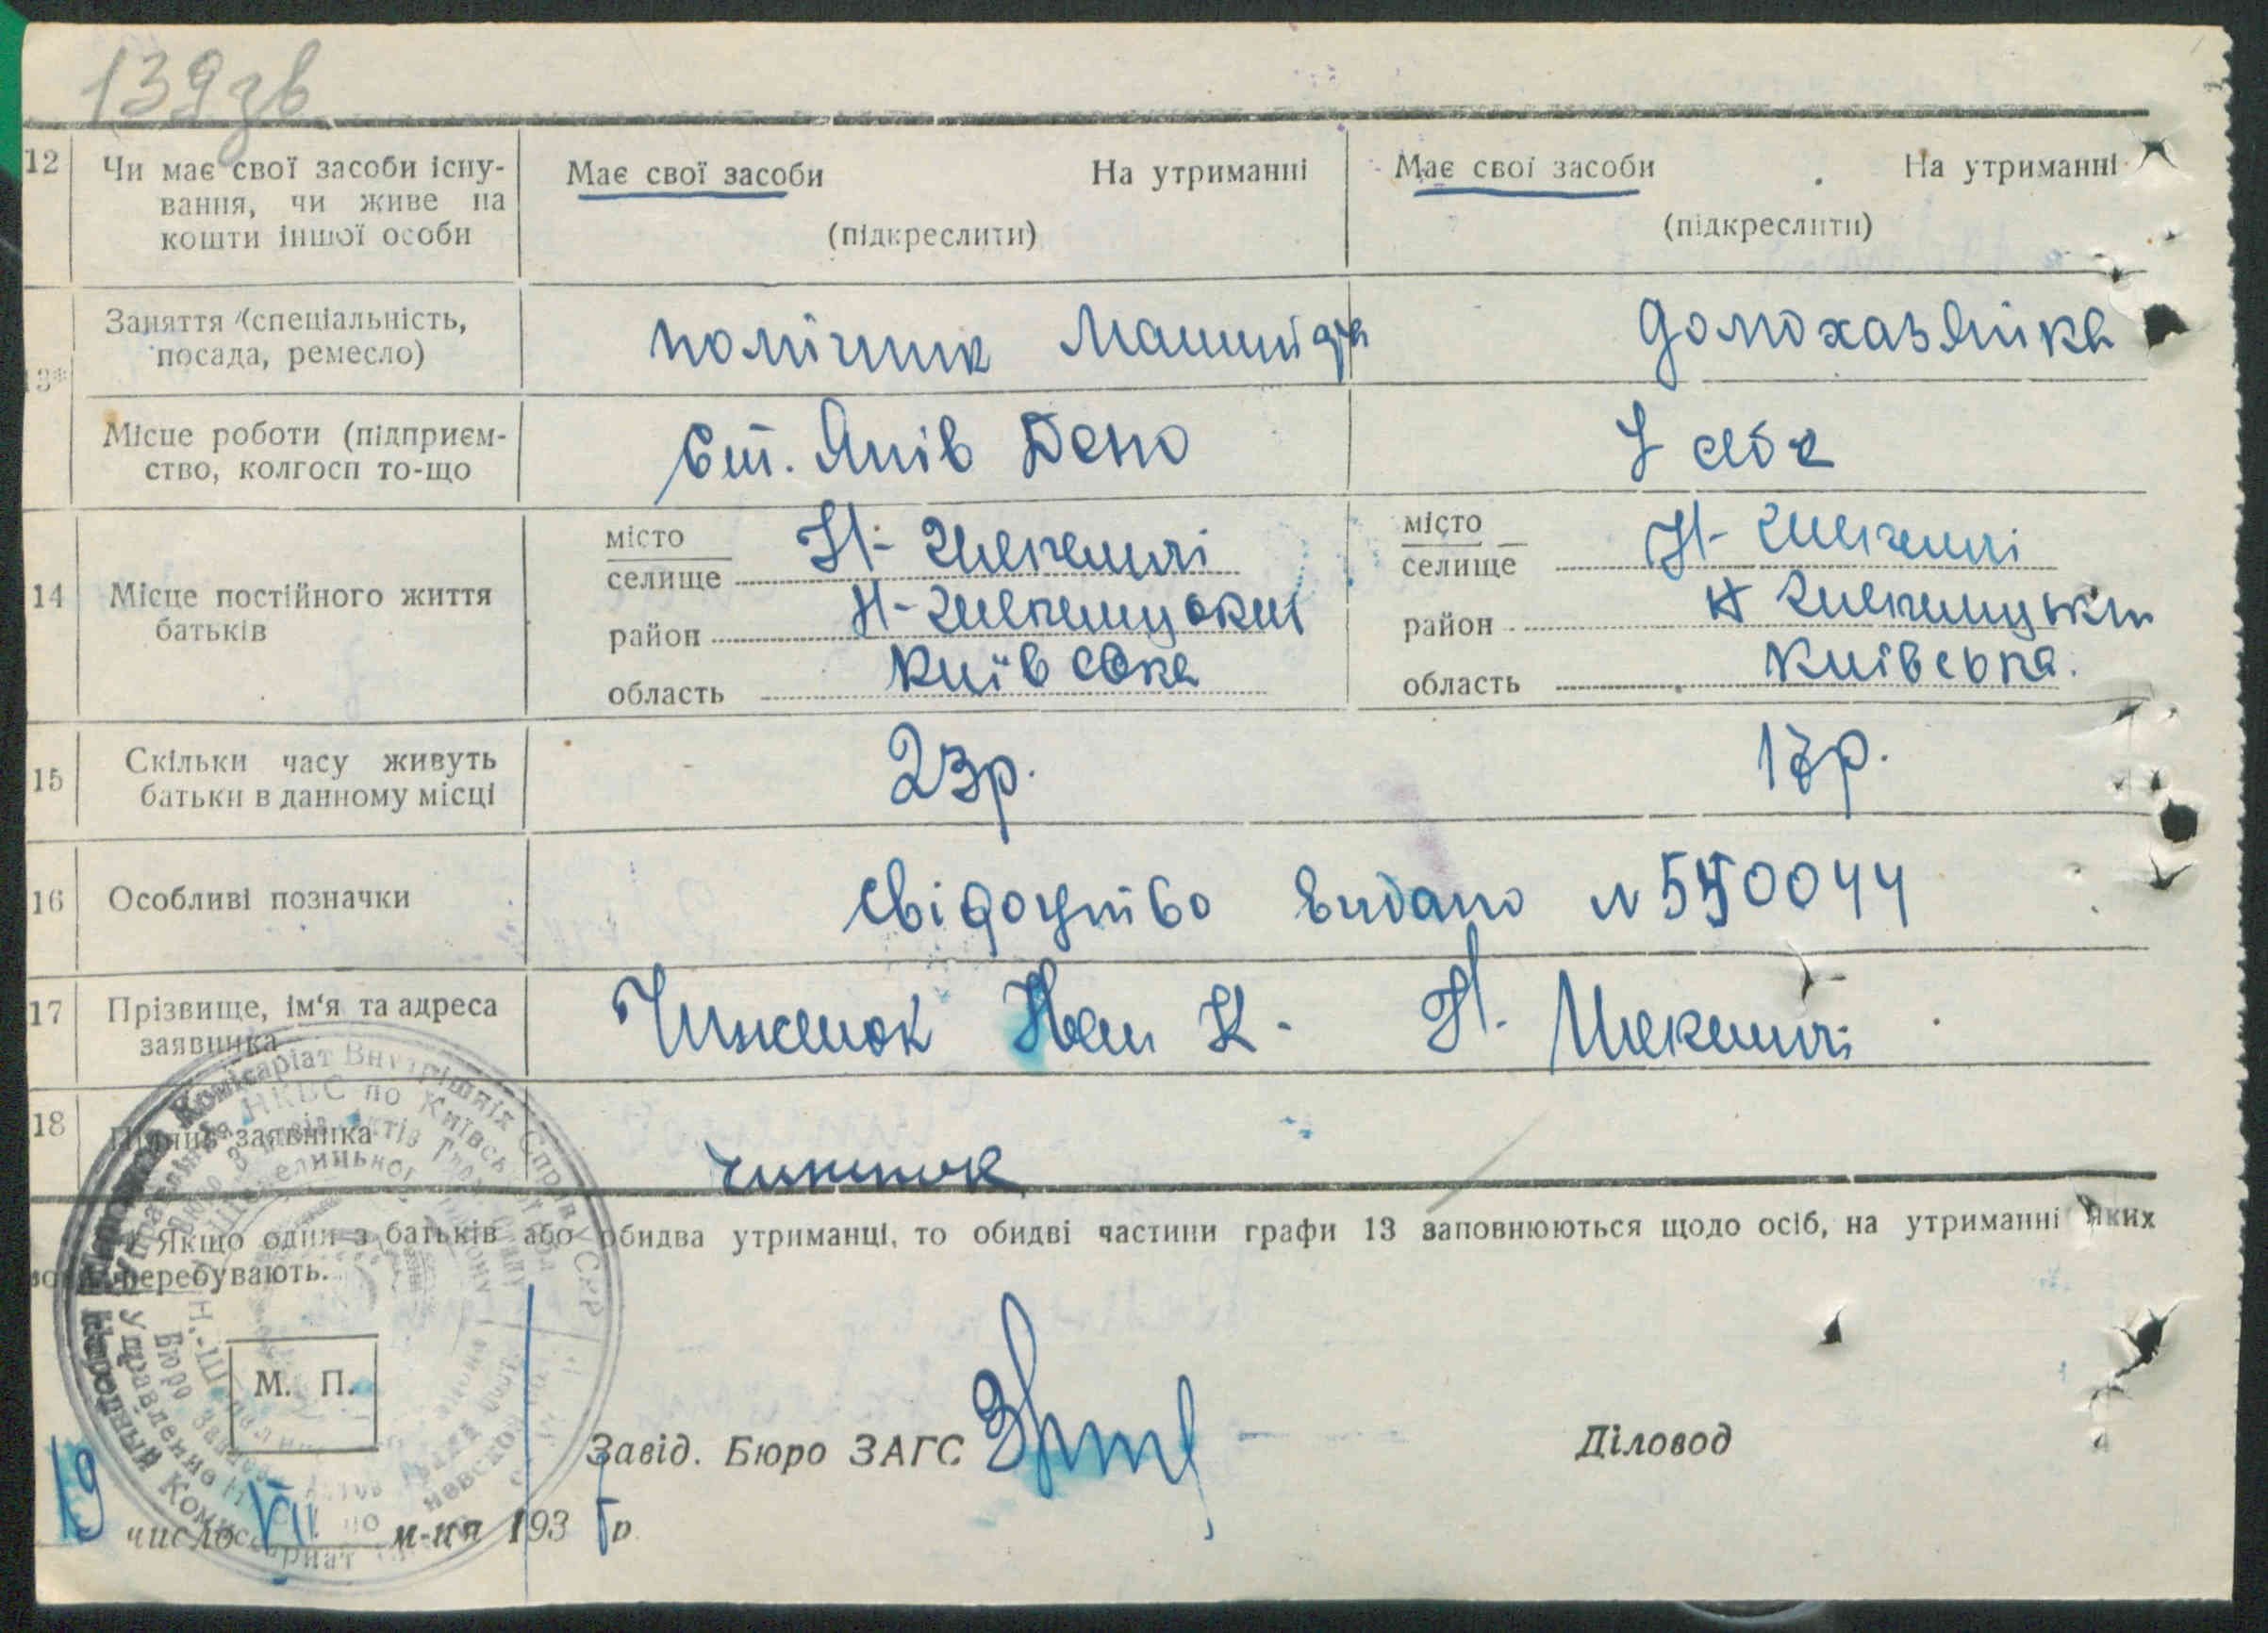 139зв
12 Чи має свої засоби існу- Має свої засоби На утриманні Має свої засоби На утриманні
вання, чи живе на
кошти іншої особи (підкреслити) (підкреслити)
Заняття (спеціальність, помічник домохазяйка
посада, ремесло)
13*
Місце роботи (підприєм- Ст. Янів Депо У себе
ство, колгосп то-що
місто Н- Шепеличі місто Н- Шепеличі
селище селище
14 Місце постійного життя район Н-Шепелицький район Н Шепелицький
батьків
область Київська область Київська.
15 Скільки часу живуть 23р. 17р.
батьки в данному місці
16 Особливі позначки свідоцтво видано N 550044
17 Прізвище, ім'я та адреса Іван К. Н. Шепеличі
заявника
18 Підпис заявника
Якщо один з батьків або обидва утриманці, то обидві частини графи 13 заповнюються щодо осіб, на утриманні яких
вони перебувають.
М. П.
Завід. Бюро ЗАГС Діловод
19 число VII м-ця 193 р.